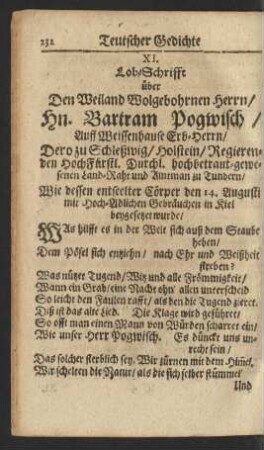 232 Teutscher Gedichte
XI.
Lob-Schrifft
über
Den Weiland Wolgebohrnen Herrn/
Hn. Bartram Pogwisch /
Auff Weissenhause Erb-Herrn/
Dero zu Schleßwig/ Holstein/ Regieren-
den HochFürstl. Durchl. hochbetraut-gewe-
senen Land-Raht und Amtman zu Tundern/
Wie dessen entseelter Cörper den 14. Augusti
mit Hoch-Adlichen Gebräuchen in Kiel
beygesetzet wurde/
WAs hilfft es in der Welt sich auß dem Staube
heben/
Dem Pöfel sich entziehn/ nach Ehr und Weißheit
streben?
Was nützet Tugend/ Witz und alle Frömmigkeit/
Wann ein Grab/ eine Nacht ohn' allen unterscheid
So leicht den Faulen rafft/ als den die Tugend zieret.
Diß ist das alte Lied. Die Klage wird geführet/
So offt man einen Mann von Würden scharret ein/
Wie unser Herr Pogwisch. Es dünckt uns un-
recht sein/
Das solcher sterblich sey. Wir zürnen mit dem Him̃el,
Wir schelten die Natur/ als die sich selber stümmel
Und